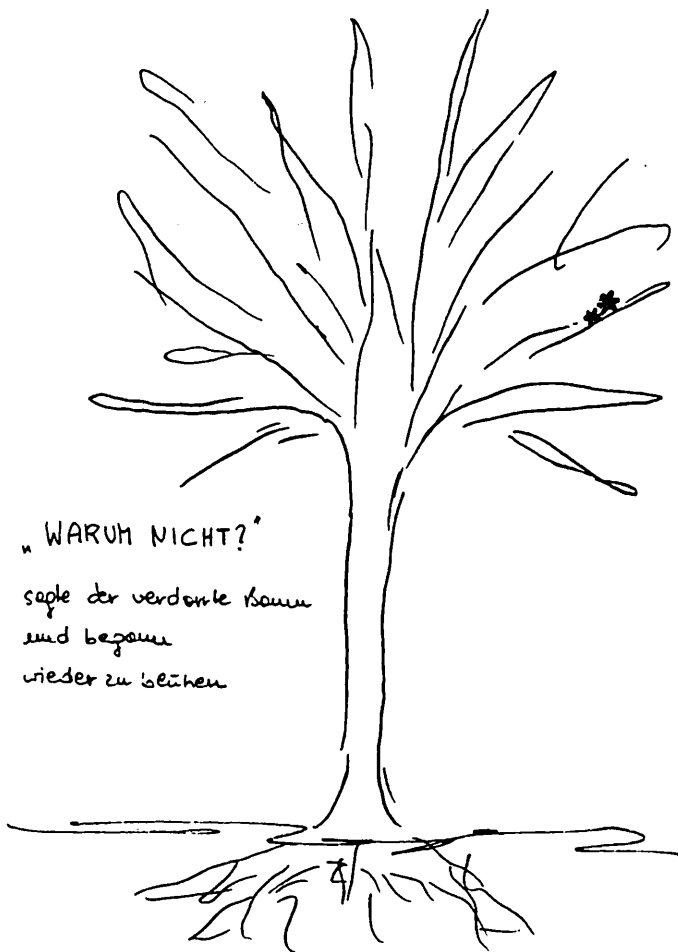 „WARUM NICHT?"
sagte der verdorrte Baum
und begann
wieder zu blühen